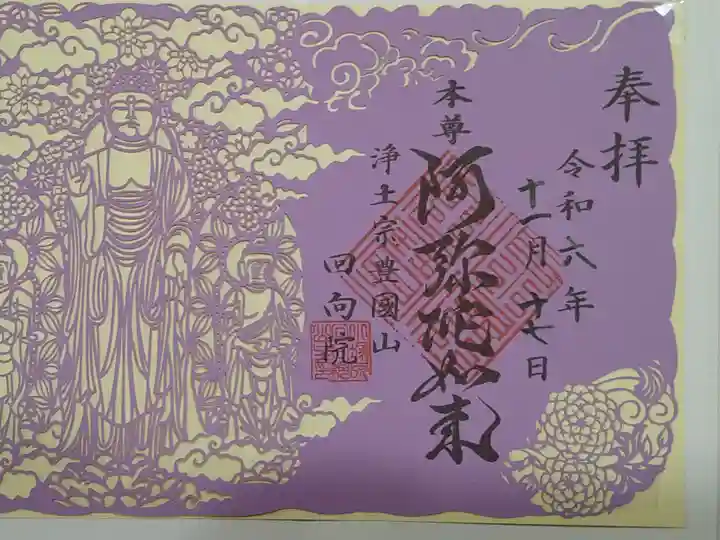 奉拝
令和六年
十一月十七日
本尊
阿弥陀如来
浄土宗豊國山
回向院